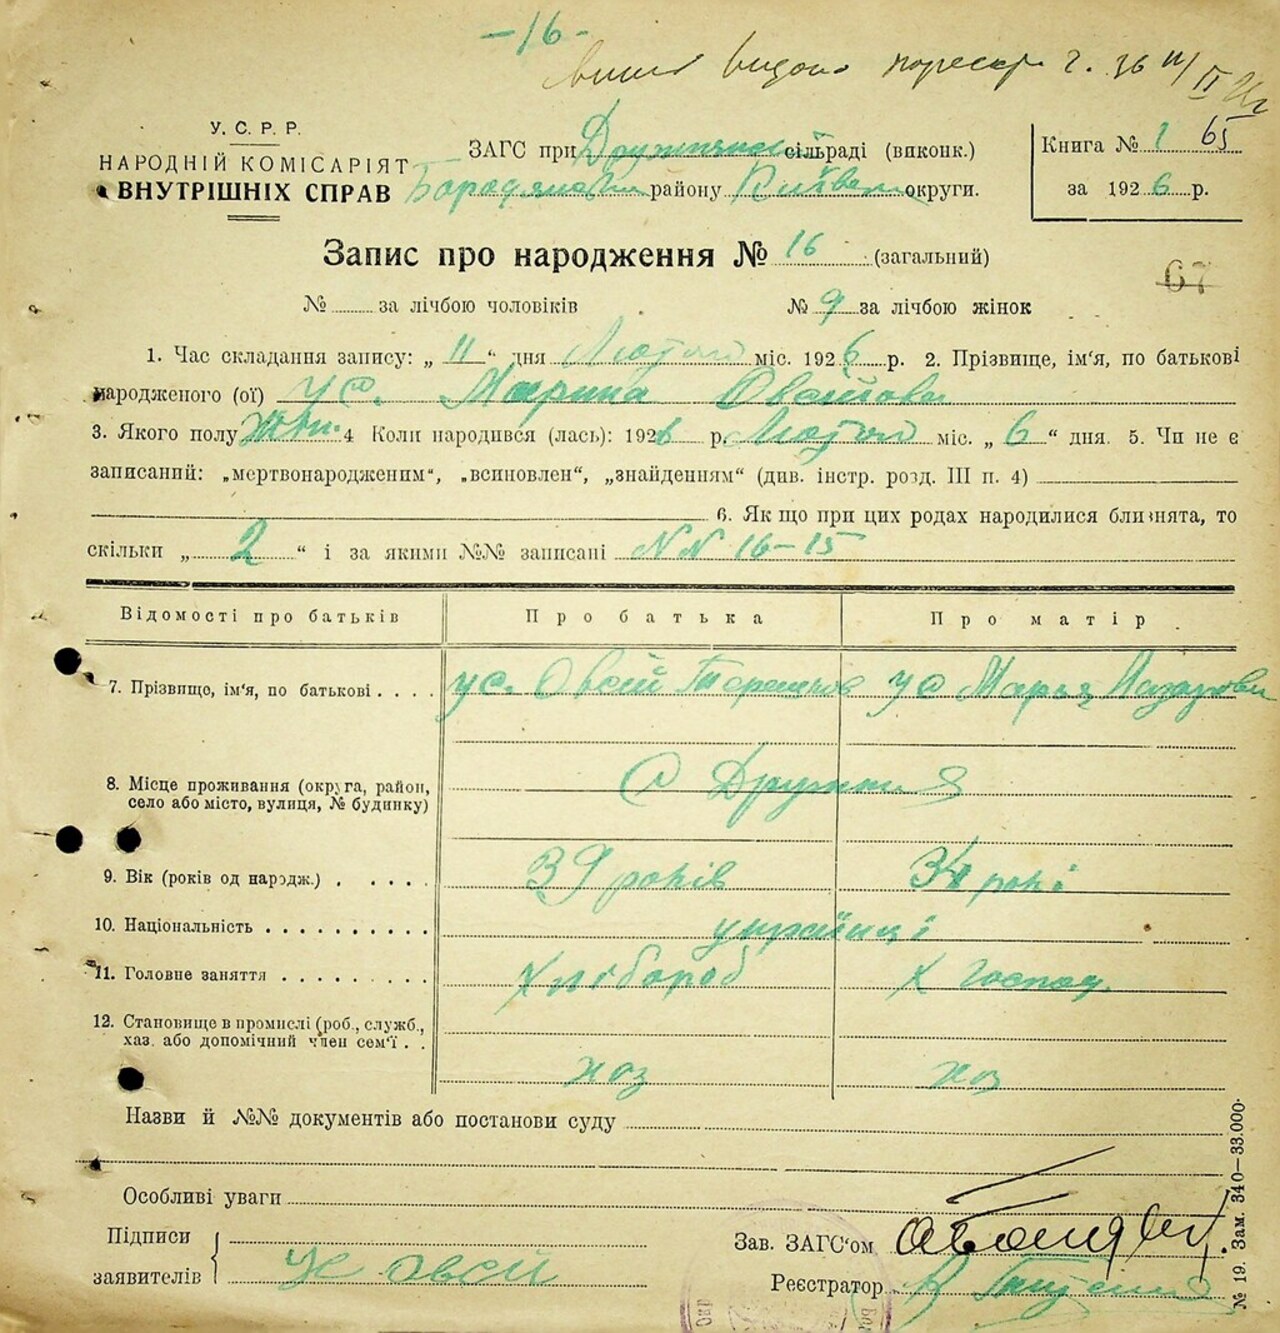 -16-
видано г. 36 11/II 26 г
У. С. Р. Р.
НАРОДНІЙ КОМІСАРІЯТ
ВНУТРІШНІХ СПРАВ
ЗАГС при Дружнянській сільраді (виконк.)
Бородянськ району Київськ округи.
Книга № 1 65
за 1926 р.
Запис про народження № 16 (загальний)
67
№ за лічбою чоловіків № 9 за лічбою жінок
1. Час складання запису: „ 11 “ дня Лютого міс. 1926 р. 2. Прізвище, ім'я, по батькові
народженого (ої) Ус. Марина Овсійовн
3. Якого полу Жін. 4 Коли народився (лась): 1926 р. Лютого міс. „ 6 “ дня. 5. Чи не є
записаний: „мертвонародженим“, „всиновлен“, „знайденням“ (див. інстр. розд. III п. 4)
6. Якщо при цих родах народилися близнята, то
скільки „ 2 “ і за якими №№ записані NN 16-15
Відомості про батьків Про батька Про матір
7. Прізвище, ім'я, по батькові . . . . Ус. Овсій Ус Мар'я Лазаровн
8. Місце проживання (округа, район,
село або місто, вулиця, № будинку) С Дружня
9. Вік (років од нарэдж.) . . . . . 39 років 34 рокі
10. Національність . . . . . . . . . . українці
11. Головне заняття . . . . . . . . . Хлібороб Х Господ.
12. Становище в промислі (роб., служб.,
хаз. або допомічний член сем'ї . .
хоз хоз
Назви й №№ документів або постанови суду
Особливі уваги
Підписи
заявителів Ус Овсій
Зав. ЗАГС'ом
Реєстратор
№ 19. Зам. 340—33.000.